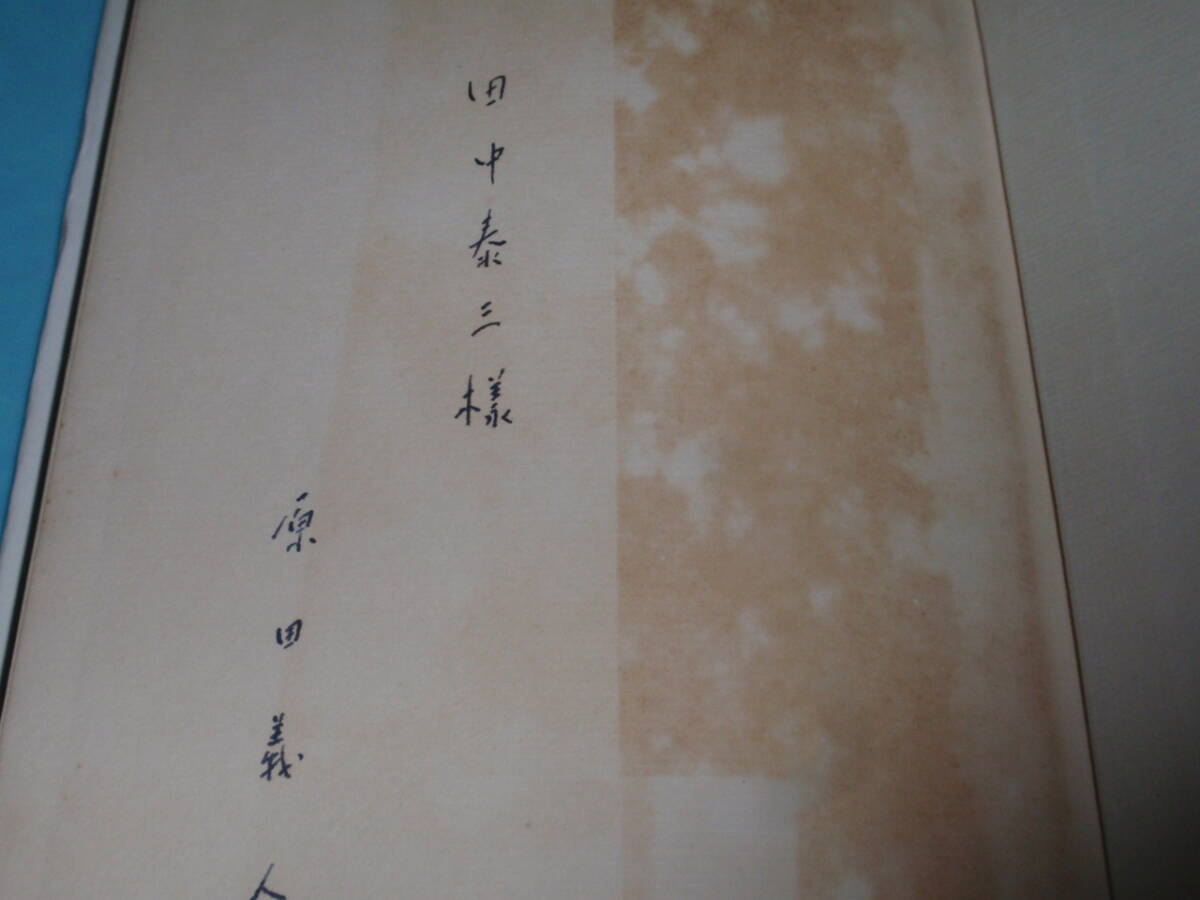 田中泰三様
原田義人